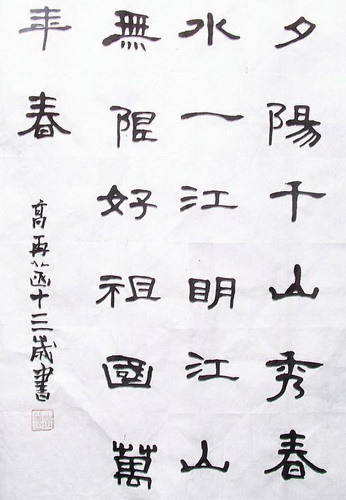 夕陽千山秀春
水一江明江山
無限好祖國萬
年春
高再菡十三歲書